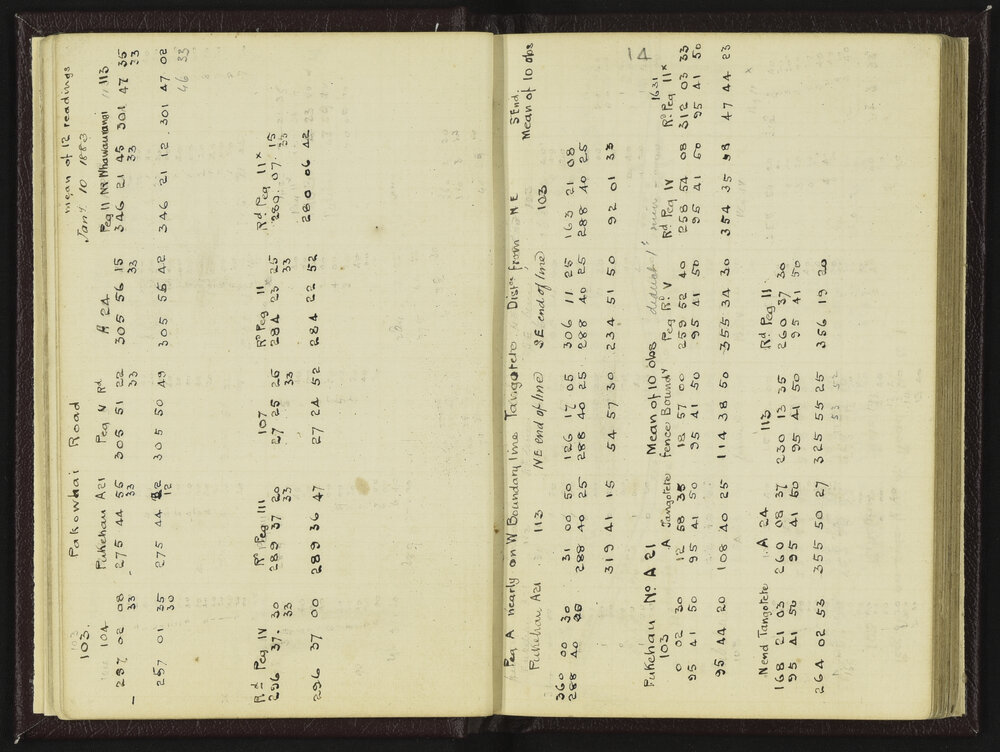 103.
Pakowhai Road
mean of 12 readings
Jany. 10 1883
104 Pukehau A21 Peg V Rd A 24 Peg II Nr Nhawaurangi 113
297 02 08 275 44 55 305 51 22 305 56 15 346 21 45 301 47 35
33 33 33 33 33 33
257 01 35 275 44 22 305 50 49 305 55 42 346 21 12 301 47 02
30 12 46 33
Rd Peg IV Rd Peg III 107 Rd Peg II Rd Peg IIx
296 37. 30 289 37 20 27 25 25 284 23 25 280 07. 15
33 33 33 33 33
296 37 00 289 36 47 27 24 52 284 22 52 280 06 42
14
Peg A nearly on W Boundary line Tangotete Dists from NE S End.
Pukehau A21 113 NE end of line SE end of line 103 Mean of 10 obs
360 00 30 31 00 50 126 17 05 306 11 25 163 21 08
288 40 288 40 25 288 40 25 288 40 25 288 40 25
319 41 15 54 57 30 234 51 50 92 01 33
Pukehau No A 21 Mean of 10 obs deduct 1'
103 A Tangotete fence Boundy Peg Rd V Rd Peg IV Rd Peg IIx
1631
0 02 30 12 58 35 18 57 00 259 52 40 258 54 08 312 03 33
95 41 50 95 41 50 95 41 50 95 41 50 95 41 50 95 41 50
95 44 20 108 40 25 114 38 50 355 34 30 354 35 58 47 44 23
N end Tangotete A 24 113 Rd Peg II
168 21 03 260 08 37 230 13 35 260 37 30
95 41 50 95 41 50 95 41 50 95 41 50
264 02 53 355 50 27 325 55 25 356 19 20
53 52